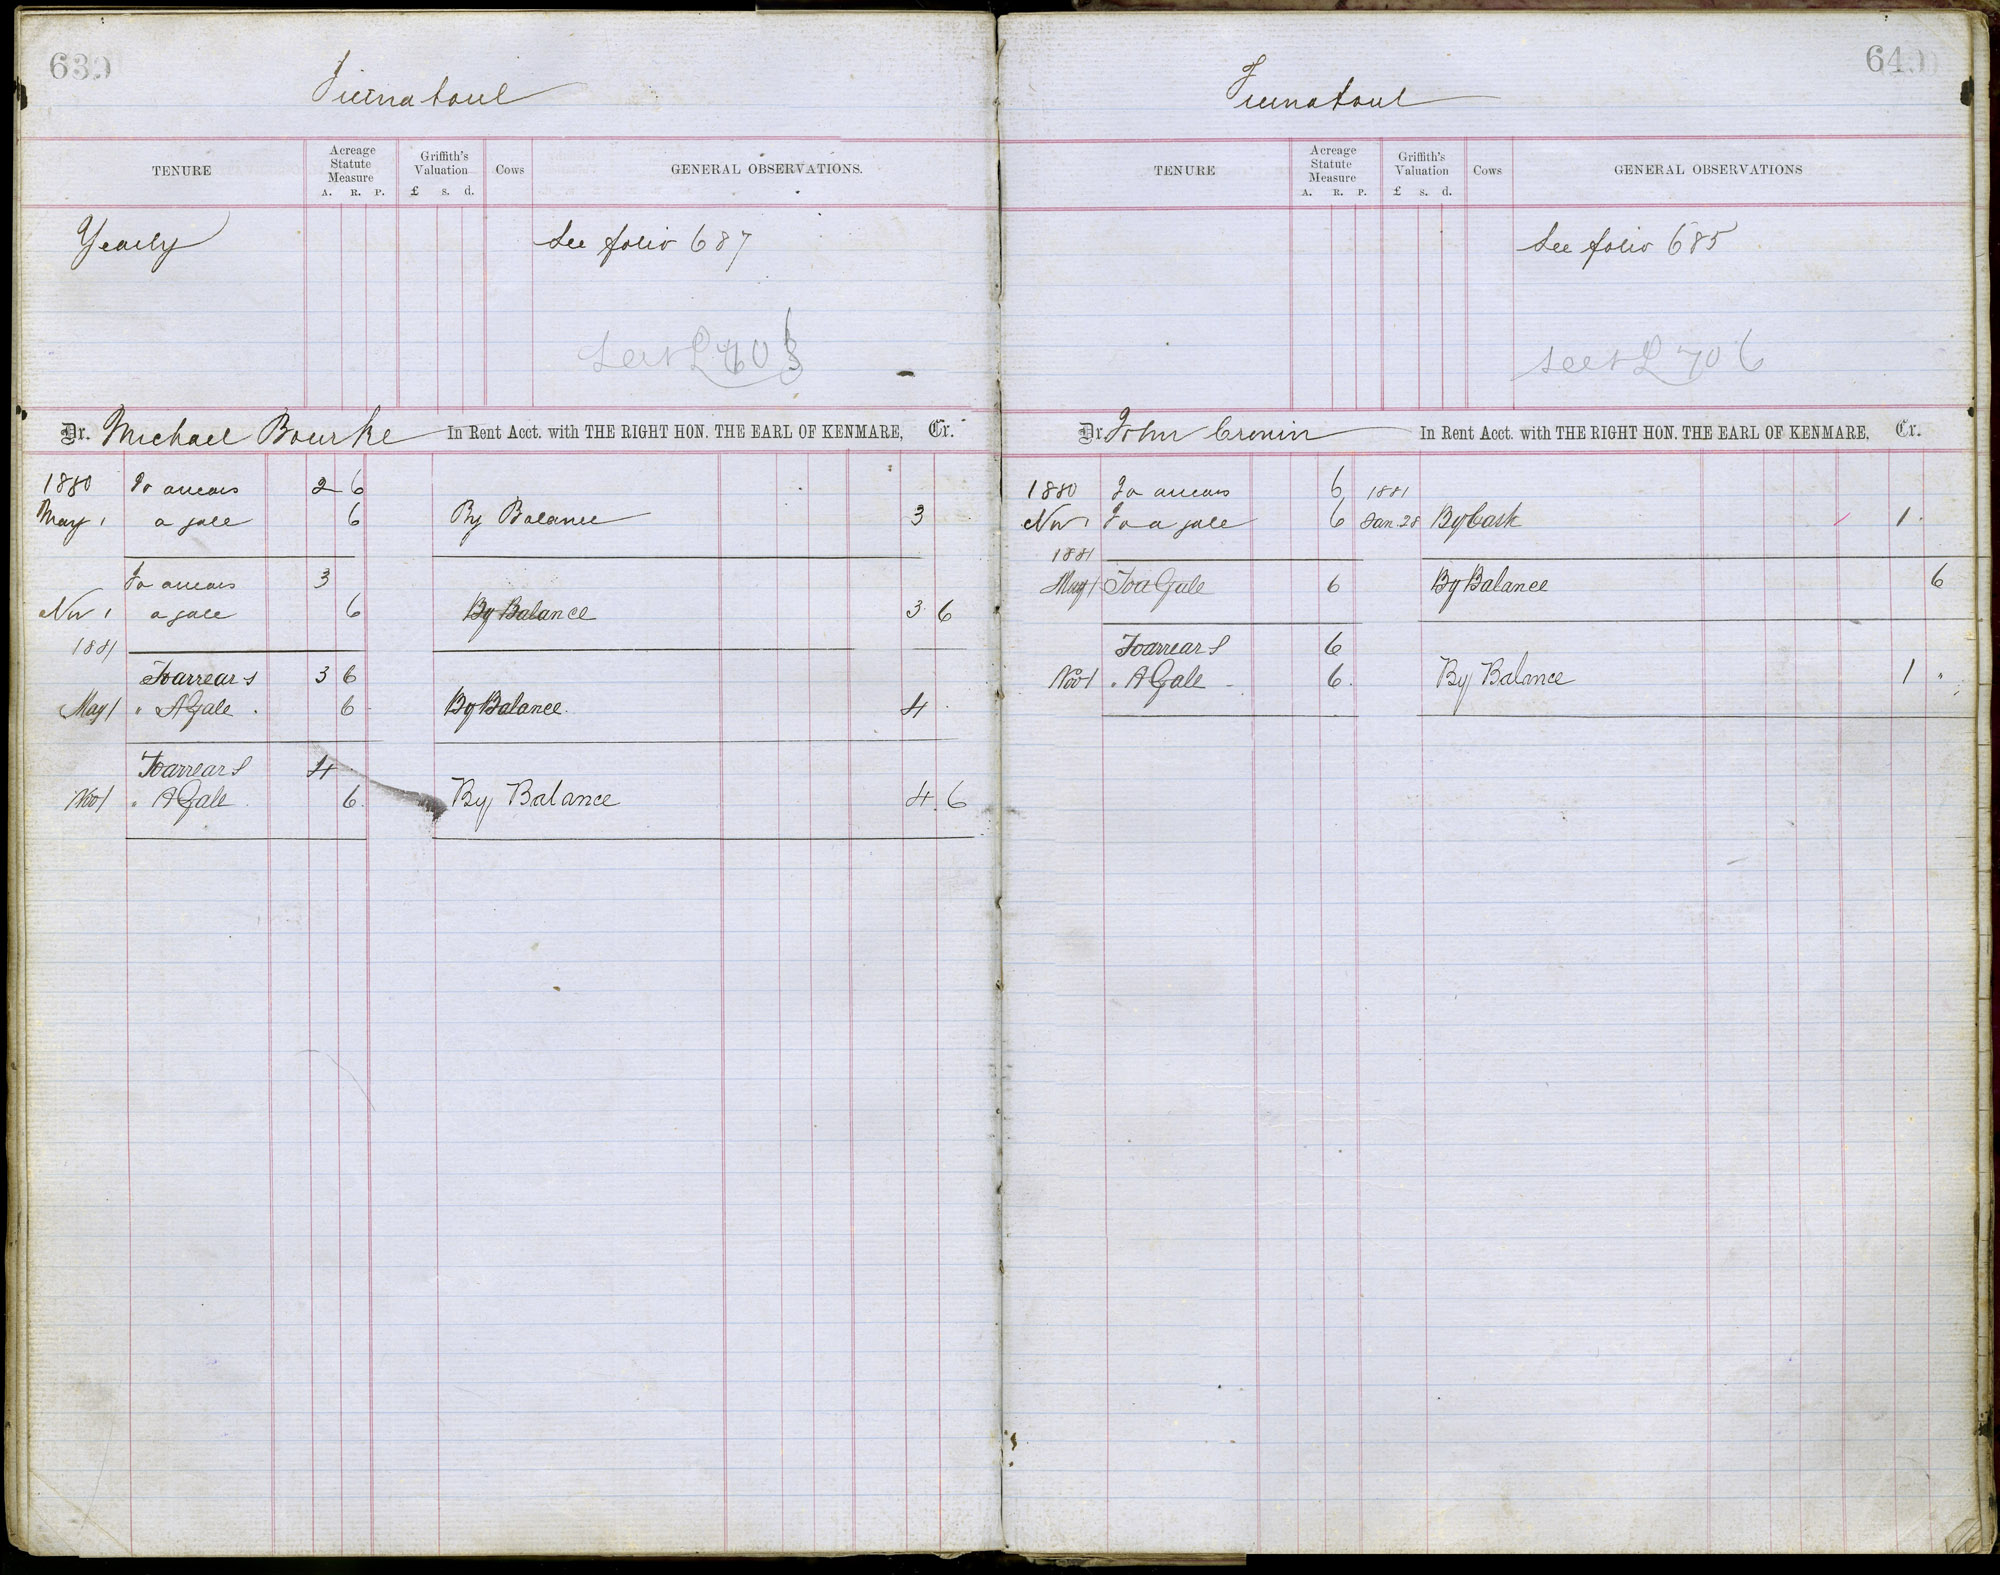 639
Tiernaboul
TENURE
Acreage Statute Measure
A. R. P.
Griffith's Valuation
£ s. d.
Cows
GENERAL OBSERVATIONS.
Yearly
See folio 687
Dr. Michael Bourke In Rent Acct. with THE RIGHT HON. THE EARL OF KENMARE, Cr.
1880 To arrears 2 6
May 1 a gale 6 By Balance 3
To arrears 3
Nov 1 a gale 6 By Balance 3 6
1881
To arrears 3 6
May 1 " A Gale 6 By Balance 4
To arrears 4
Nov 1 " A Gale 6 By Balance 4 6
640
Tiernaboul
TENURE
Acreage Statute Measure
A. R. P.
Griffith's Valuation
£ s. d.
Cows
GENERAL OBSERVATIONS
See folio 685
706
Dr. John Cronin In Rent Acct. with THE RIGHT HON. THE EARL OF KENMARE, Cr.
1880 To arrears 6 1881
Nov 1 To a gale 6 Jan 28 By Cash 1
1881
May 1 To a Gale 6 By Balance 6
To arrears 6
Nov 1 " A Gale 6 By Balance 1 "